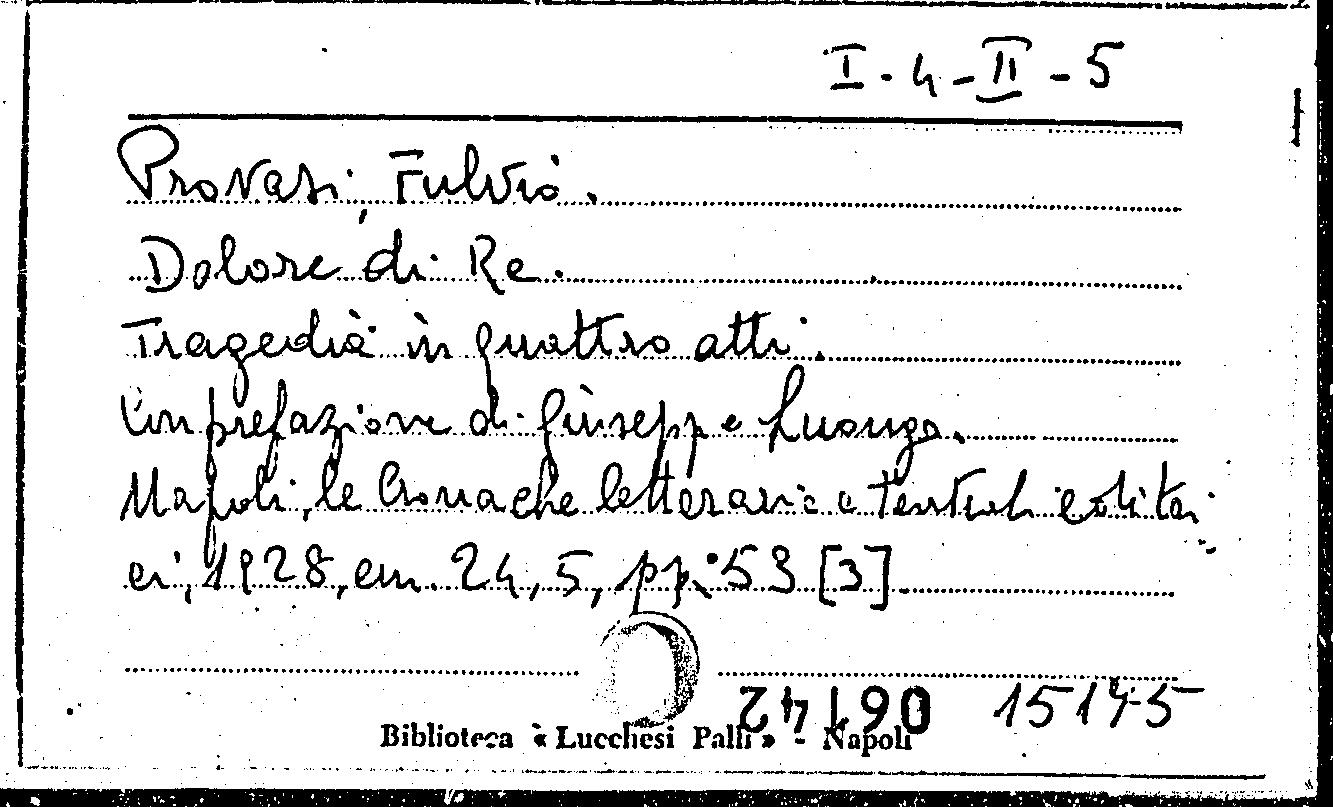 I-4-II-5
Provasi, Fulvio.
Dolore di Re.
Tragedia in quattro atti.
Con prefazione di Giuseppe Luongo.
Napoli, le Cronache letterarie e teatrali edi tri
ci, 1928, cm. 24,5, pp. 53 [3].
06142 15145
Biblioteca « Lucchesi Palli » - Napoli